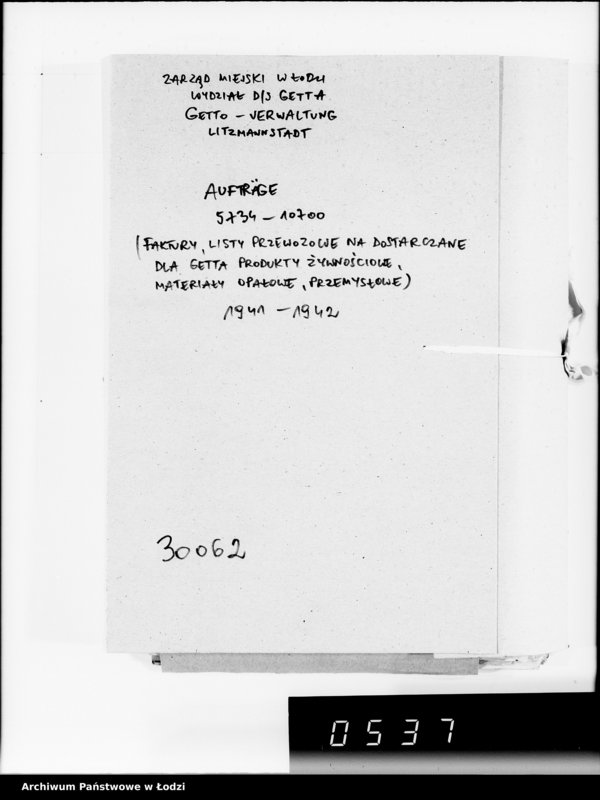 ZARZĄD MIEJSKI W ŁODZI
WYDZIAŁ D/S GETTA
GETTO – VERWALTUNG
LITZMANNSTADT
AUFTRÄGE
5734 – 10700
(FAKTURY, LISTY PRZEWOZOWE NA DOSTARCZANE
DLA GETTA PRODUKTY ŻYWNOŚCIOWE,
MATERIAŁY OPAŁOWE, PRZEMYSŁOWE)
1941 – 1942
30062
0537
Archiwum Państwowe w Łodzi